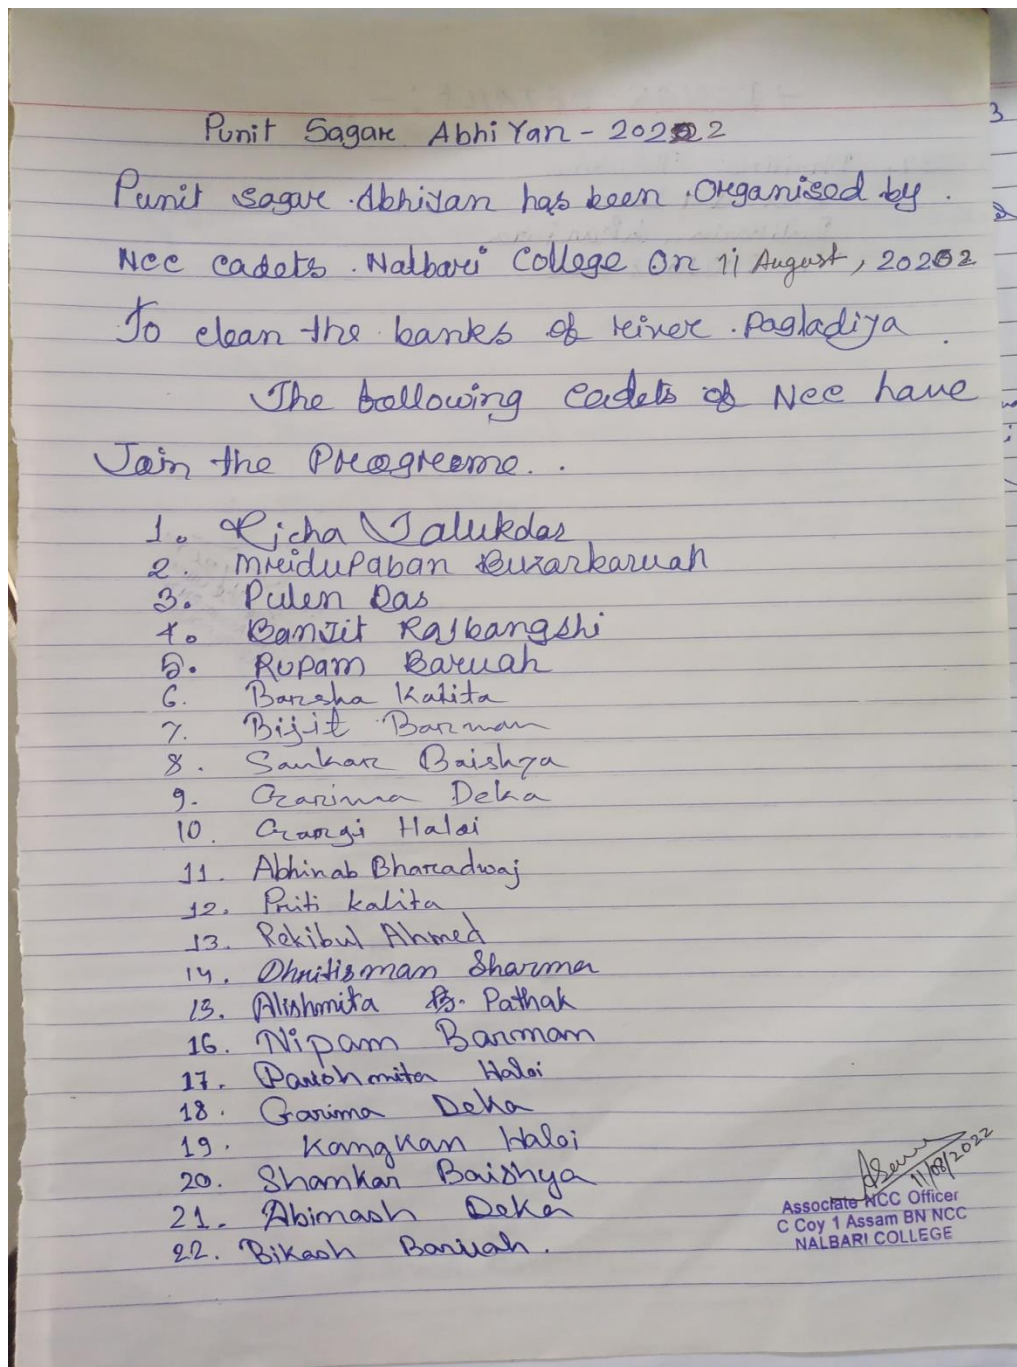 Punit Sagar Abhiyan - 2022
Punit Sagar Abhiyan has been Organised by
NCC Cadets. Nalbari College On 11 August, 2022
To clean the banks of river. Pagladiya
The following Cadets of NCC have
Join the Programe..
1. Richa Talukdar
2. Mridupaban Buzarbaruah
3. Pulen Das
4. Banjit Rajbangshi
5. Rupam Baruah
6. Barsha Kalita
7. Bijit Barman
8. Sankar Baishya
9. Garima Deka
10. Gargi Haloi
11. Abhinab Bharadwaj
12. Priti Kalita
13. Rekibul Ahmed
14. Dhritisman Sharma
15. Alishmita B. Pathak
16. Nipam Barman
17. Parishmita Haloi
18. Garima Deka
19. Kangkan Haloi
20. Shankar Baishya
21. Abinash Deka
22. Bikash Baruah.
11/08/2022
Associate NCC Officer
C Coy 1 Assam BN NCC
NALBARI COLLEGE